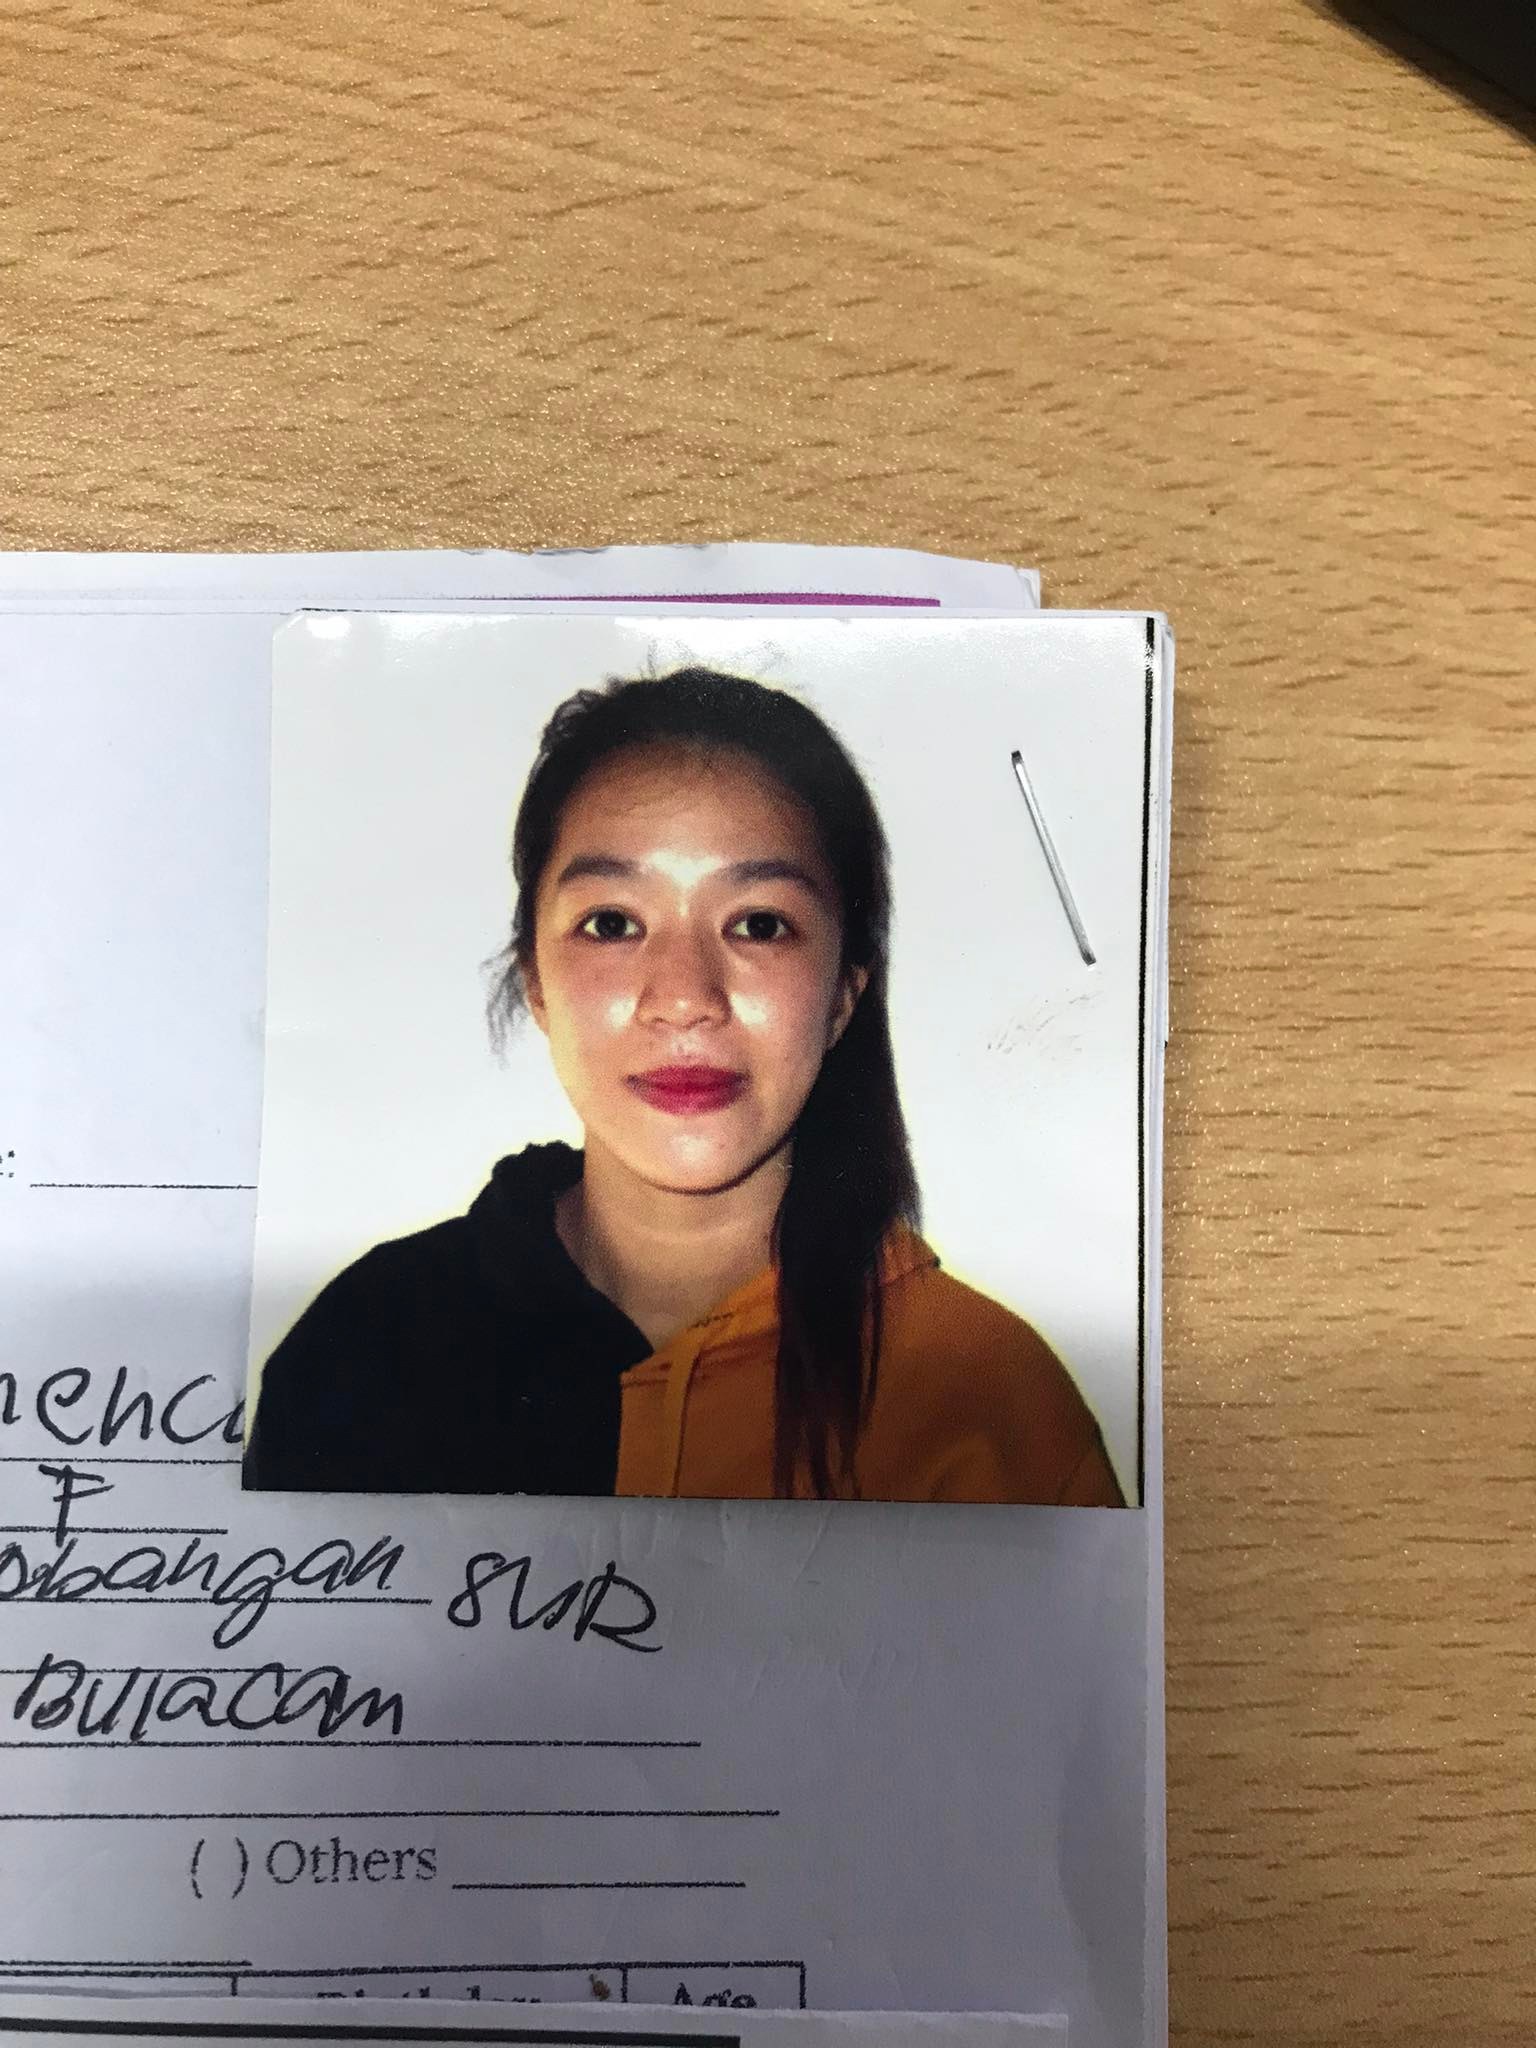 :
F
obangan SUR
Bulacan
( ) Others
Birthday Age